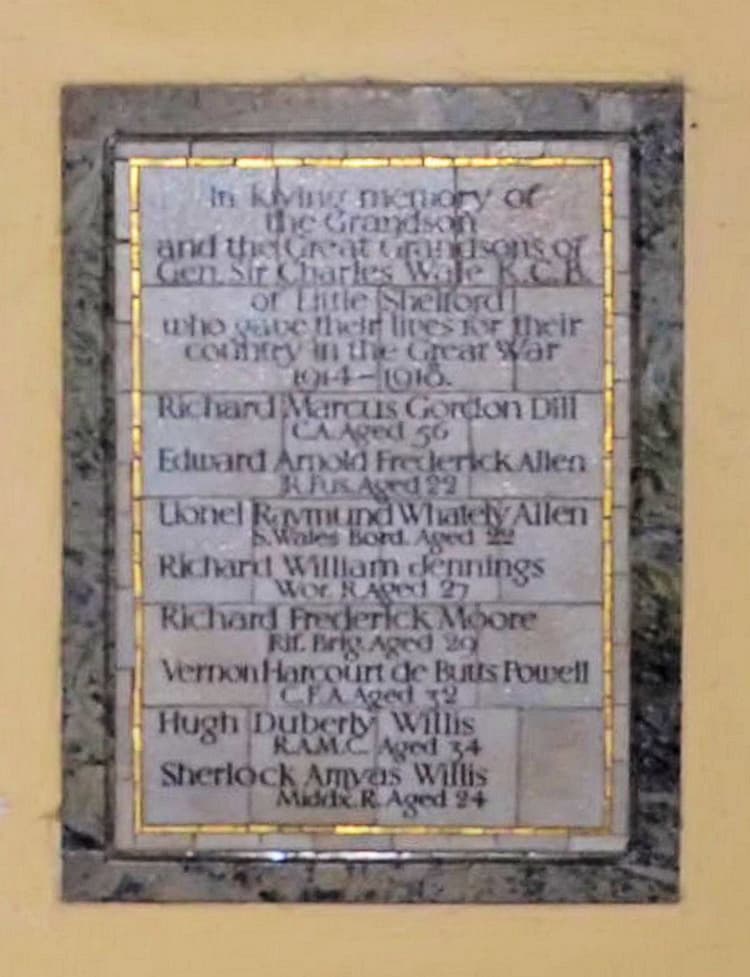 In loving memory of
the Grandson
and the Great Grandsons of
Gen. Sir Charles Wale K.C.B.
of Little Shelford
who gave their lives for their
country in the Great War
1914-1918.
Richard Marcus Gordon Dill
C.A. Aged 56
Edward Arnold Frederick Allen
R. Fus. Aged 22
Lionel Raymund Whately Allen
S. Wales Bord. Aged
Richard William Jennings
Wor. R. Aged 27
Richard Frederick Moore
Rif. Brig. Aged 29
Vernon Harcourt de Butts Powell
Aged 32
Hugh Duberly Willis
R.A.M.C. Aged 34
Sherlock Amyas Willis
Middx. R. Aged 24